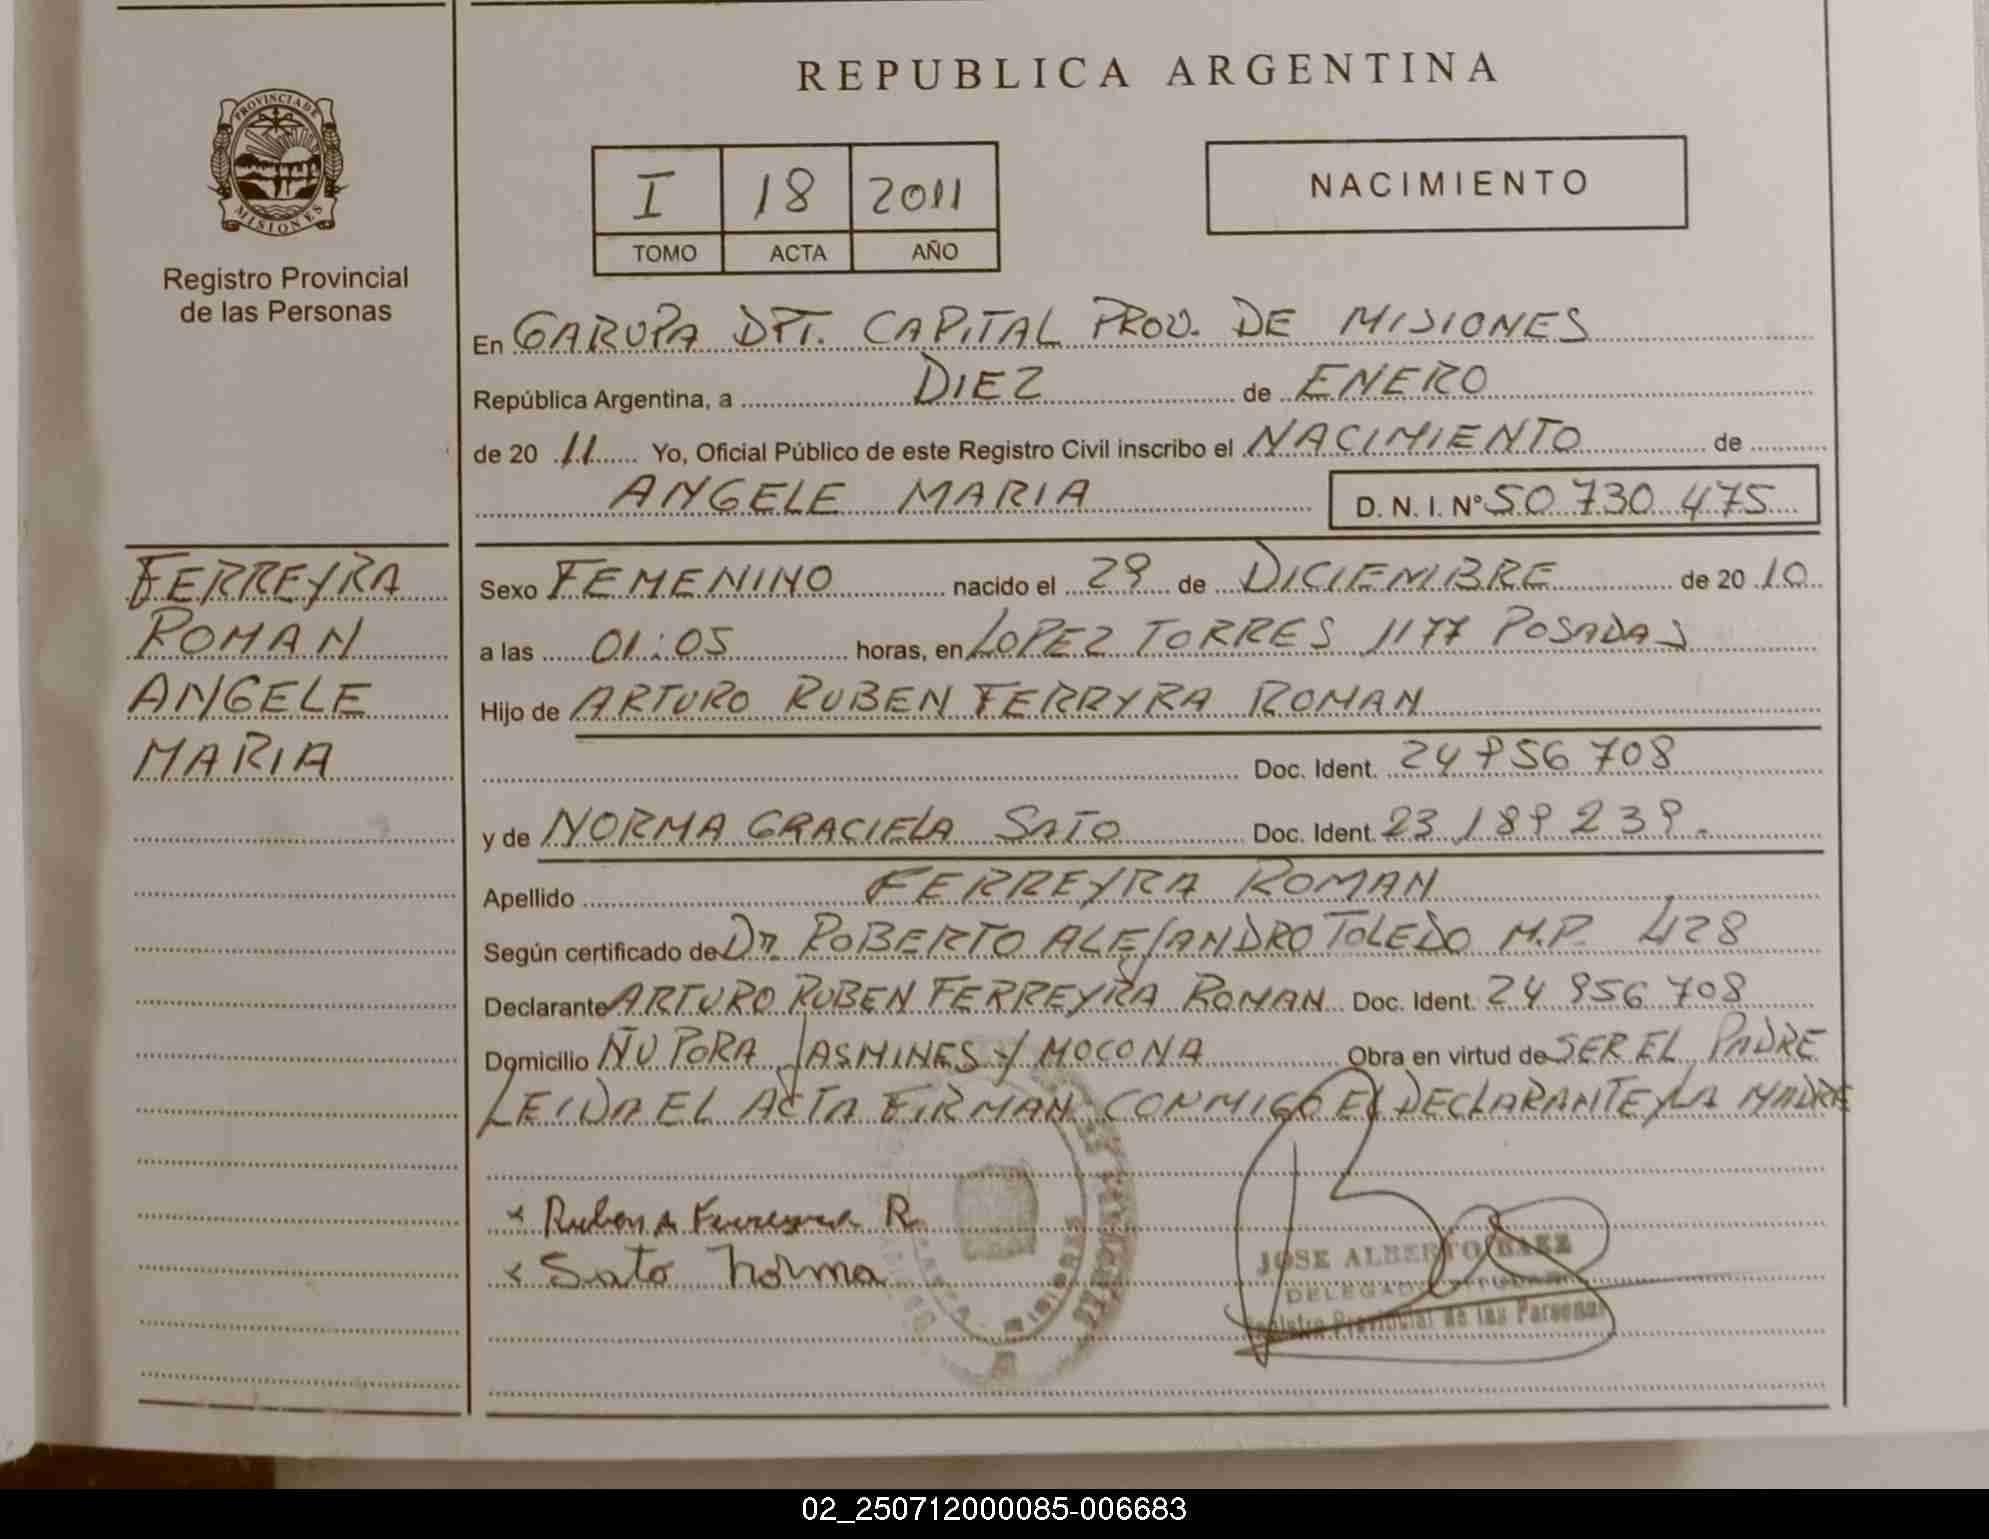 REPUBLICA ARGENTINA
PROVINCIA DE
MISIONES
Registro Provincial
de las Personas
I 18 2011
TOMO ACTA AÑO
NACIMIENTO
En GARUPA DPT. CAPITAL PROV. DE MISIONES
República Argentina, a DIEZ de ENERO
de 20 11 Yo, Oficial Público de este Registro Civil inscribo el NACIMIENTO de
ANGELE MARIA D. N. I. Nº 50 730 475
FERREYRA
ROMAN
ANGELE
MARIA
Sexo FEMENINO nacido el 29 de DICIEMBRE de 20 10
a las 01:05 horas, en LOPEZ TORRES 1177 POSADAS
Hijo de ARTURO RUBEN FERRYRA ROMAN
Doc. Ident. 24 956 708
y de NORMA GRACIELA SATO Doc. Ident. 23 189 239.
Apellido FERREYRA ROMAN
Según certificado de Dr. ROBERTO ALEJANDRO TOLEDO M.P. 428
Declarante ARTURO RUBEN FERREYRA ROMAN Doc. Ident. 24 956 708
Domicilio ÑU PORA JASMINES Y MOCONA Obra en virtud de SER EL PADRE
LEIDA EL ACTA FIRMAN CONMIGO EL DECLARANTE Y LA MADRE
Ruben A Ferreyra R.
Sato Norma
MISIONES
JOSE ALBERTO BAEZ
DELEGADO
Registro Provincial de las Personas
02_250712000085-006683